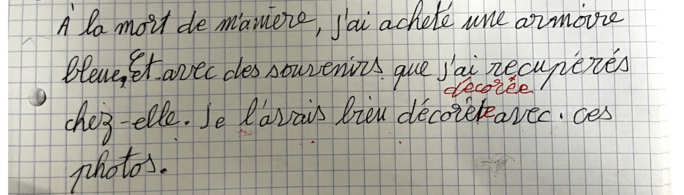 À la mort de m'amière, j'ai acheté une armoire
bleue, Et avec des souvenirs que j'ai recupérés
décorée
chez-elle. Je l'avais bien décorée avec. ces
photos.